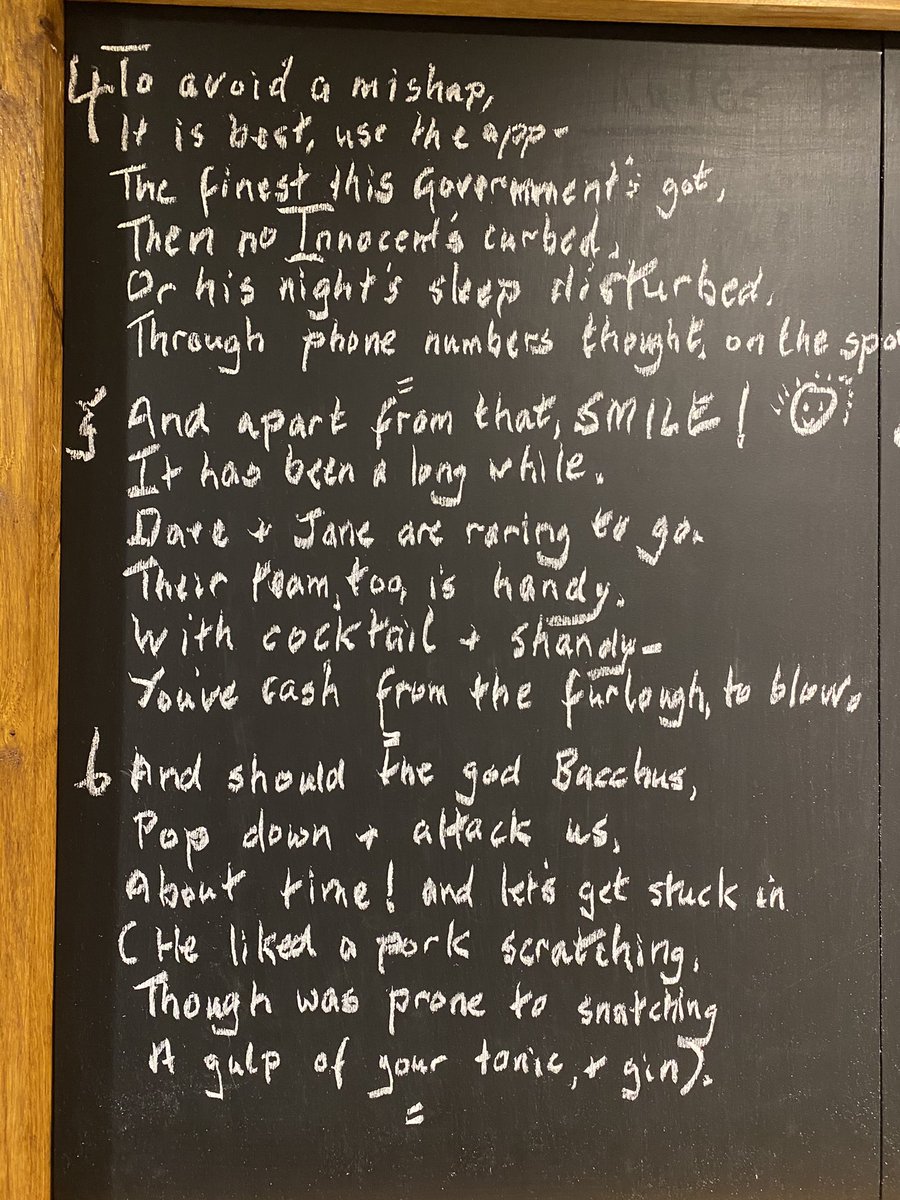 4 To avoid a mishap,
It is best, use the app-
The finest this Government's got,
Then no Innocent's curbed,
Or his night's sleep disturbed,
Through phone numbers thought, on the spo
=
5 And apart from that, SMILE!
It has been a long while.
Dave + Jane are raring to go.
Their team, too, is handy,
With cocktail + shandy-
You've cash from the furlough, to blow.
=
6 And should the god Bacchus,
Pop down + attack us,
About time! and let's get stuck in
(He liked a pork scratching,
Though was prone to snatching
A gulp of your tonic, + gin).
=